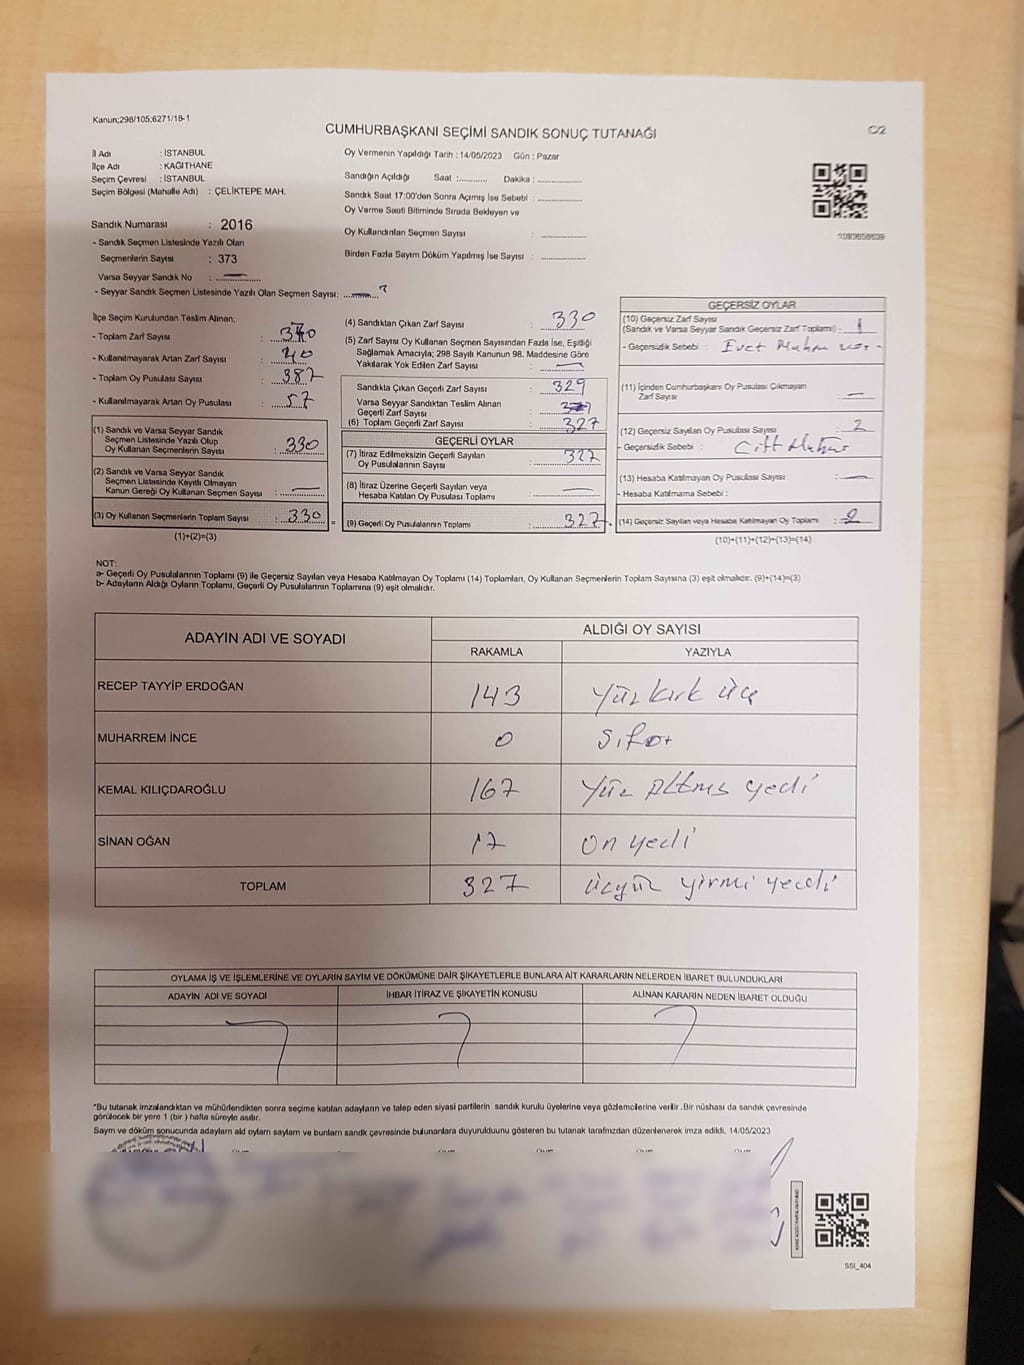 Kanun;298/105;6271/18-1
CUMHURBAŞKANI SEÇİMİ SANDIK SONUÇ TUTANAĞI
C/2
İl Adı : İSTANBUL
İlçe Adı : KAĞITHANE
Seçim Çevresi : İSTANBUL
Seçim Bölgesi (Mahalle Adı) : ÇELİKTEPE MAH.
Sandık Numarası : 2016
- Sandık Seçmen Listesinde Yazılı Olan
Seçmenlerin Sayısı : 373
Varsa Seyyar Sandık No :
- Seyyar Sandık Seçmen Listesinde Yazılı Olan Seçmen Sayısı:
Oy Vermenin Yapıldığı Tarih : 14/05/2023 Gün : Pazar
Sandığın Açıldığı Saat :.......... Dakika :..............
Sandık Saat 17:00'den Sonra Açımış İse Sebebi :..............
Oy Verme Saati Bitiminde Sırada Bekleyen ve
Oy Kullandırılan Seçmen Sayısı :..............
Birden Fazla Sayım Döküm Yapılmış İse Sayısı :..............
İlçe Seçim Kurulundan Teslim Alınan;
- Toplam Zarf Sayısı :
- Kullanılmayarak Artan Zarf Sayısı : 40
- Toplam Oy Pusulası Sayısı : 387
- Kullanılmayarak Artan Oy Pusulası : 57
(1) Sandık ve Varsa Seyyar Sandık
Seçmen Listesinde Yazılı Olup
Oy Kullanan Seçmenlerin Sayısı : 330
(2) Sandık ve Varsa Seyyar Sandık
Seçmen Listesinde Kayıtlı Olmayan
Kanun Gereği Oy Kullanan Seçmen Sayısı : —
(3) Oy Kullanan Seçmenlerin Toplam Sayısı : 330
(1)+(2)=(3)
(4) Sandıktan Çıkan Zarf Sayısı : 330
(5) Zarf Sayısı Oy Kullanan Seçmen Sayısından Fazla İse, Eşitliği
Sağlamak Amacıyla; 298 Sayılı Kanunun 98. Maddesine Göre
Yakılarak Yok Edilen Zarf Sayısı : —
Sandıkta Çıkan Geçerli Zarf Sayısı : 329
Varsa Seyyar Sandıktan Teslim Alınan
Geçerli Zarf Sayısı :
(6) Toplam Geçerli Zarf Sayısı : 327
GEÇERLİ OYLAR
(7) İtiraz Edilmeksizin Geçerli Sayılan
Oy Pusulalarının Sayısı : 327
(8) İtiraz Üzerine Geçerli Sayılan veya
Hesaba Katılan Oy Pusulası Toplamı : —
(9) Geçerli Oy Pusulalarının Toplamı : 327
GEÇERSİZ OYLAR
(10) Geçersiz Zarf Sayısı
(Sandık ve Varsa Seyyar Sandık Geçersiz Zarf Toplamı) : 1
- Geçersizlik Sebebi : Evet
(11) İçinden Cumhurbaşkanı Oy Pusulası Çıkmayan
Zarf Sayısı : —
(12) Geçersiz Sayılan Oy Pusulası Sayısı : 2
- Geçersizlik Sebebi : Çift Mühür
(13) Hesaba Katılmayan Oy Pusulası Sayısı : —
- Hesaba Katılmama Sebebi :
(14) Geçersiz Sayılan veya Hesaba Katılmayan Oy Toplamı :
(10)+(11)+(12)+(13)=(14)
NOT:
a- Geçerli Oy Pusulalarının Toplamı (9) ile Geçersiz Sayılan veya Hesaba Katılmayan Oy Toplamı (14) Toplamları, Oy Kullanan Seçmenlerin Toplam Sayısına (3) eşit olmalıdır. (9)+(14)=(3)
b- Adayların Aldığı Oyların Toplamı, Geçerli Oy Pusulalarının Toplamına (9) eşit olmalıdır.
ADAYIN ADI VE SOYADI
ALDIĞI OY SAYISI
RAKAMLA YAZIYLA
RECEP TAYYİP ERDOĞAN 143 Yüz kırk üç
MUHARREM İNCE 0 Sıfır
KEMAL KILIÇDAROĞLU 167 Yüz Altmış yedi
SİNAN OĞAN 17 on yedi
TOPLAM 327 üçyüz yirmi yedi
OYLAMA İŞ VE İŞLEMLERİNE VE OYLARIN SAYIM VE DÖKÜMÜNE DAİR ŞİKAYETLERLE BUNLARA AİT KARARLARIN NELERDEN İBARET BULUNDUKLARI
ADAYIN ADI VE SOYADI İHBAR İTİRAZ VE ŞİKAYETİN KONUSU ALINAN KARARIN NEDEN İBARET OLDUĞU
*Bu tutanak imzalandıktan ve mühürlendikten sonra seçime katılan adayların ve talep eden siyasi partilerin sandık kurulu üyelerine veya gözlemcilerine verilir .Bir nüshası da sandık çevresinde
görülecek bir yere 1 (bir ) hafta süreyle asılır.
Sayım ve döküm sonucunda adayların aldı oyların sayıların ve bunların sandık çevresinde bulunanlara duyurulduunu gösteren bu tutanak tarafımzdan düzenlenerek imza edildi. 14/05/2023
SSI_404